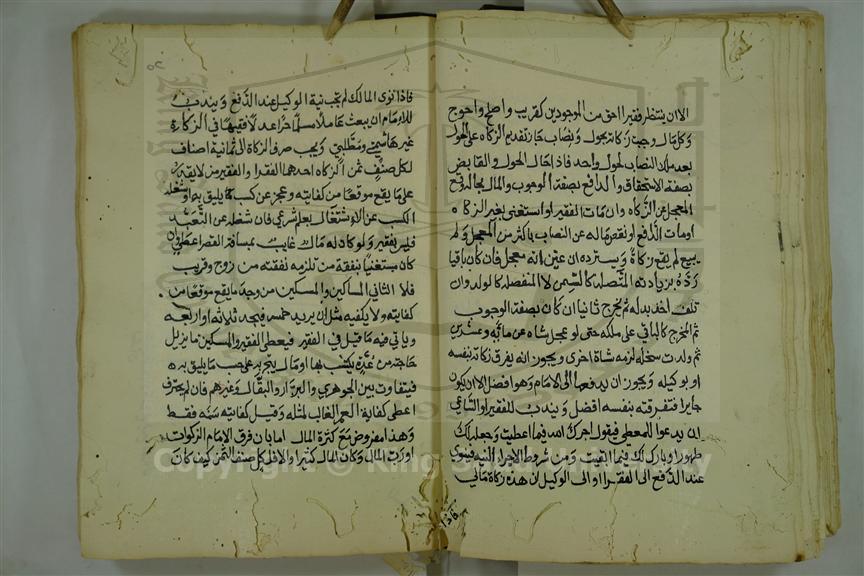 الا ان ينتظر فقيرا احق من الموجودين كقريب واصلح واحوج
وكل مال وجبت زكاته بحول ونصاب جاز تقديم الزكاه على الحول
بعد ملك النصاب لحول واحد فاذا حال الحول والقابض
بصفة الاستحقاق والدافع بصفة الوجوب والمال بحاله وقع
المعجل عن الزكاة وان مات الفقير او استغنى بغير الزكاه
او مات الدافع او نقص ماله عن النصاب باكثر من المعجل ولم
يبيع لم يقع زكاة ويسترده ان عين انه معجل فان كان باقيا
رده بزيادته المتصله كالسمن لا المنفصله كالولد وان
تلف اخذ بدله ثم يخرج ثانيا ان كان بصفة الوجوب
ثم المخرج كالباقي على ملكه حتى لو عجل شاه عن مائه وعشرين
ثم ولدت سخله لزمه شاة اخرى ويجوز انه يفرق زكاته بنفسه
او بوكيله ويجوز ان يدفعها الى الامام وهو افضل الا ان يكون
جايرا فتفرقته بنفسه افضل ويندب للفقير او الساعي
ان يدعوا للمعطي فيقول اجرك الله فيما اعطيت وجعله لك
طهورا وبارك لك فيما ابقيت ومن شروط الاجزا النيه فينوي
عند الدفع الى الفقرا او الى الوكيل ان هذه زكاة مالي
فاذا
٥٢
فاذا نوى المالك لم تجب نية الوكيل عند الدفع ويندب
للامام ان يبعث عاملا مسلما حرا عدلا فقيها في الزكاة
غير هاشمي ومطلبي ويجب صرف الزكاة الى ثمانية اصناف
لكل صنف ثمن الزكاه احدها الفقرا والفقير من لا يقدر
على ما يقع موقعا من كفايته وعجز عن كسب يليق به او شغله
الكسب عن الاشتغال بعلم شرعي فان شغله عن التعبد
فليس بفقير ولو كان له مال غايب بمسافة القصر اعطي وان
كان مستغنيا بنفقة من تلزمه نفقته من زوج وقريب
فلا الثاني المساكين والمسكين من وجد ما يقع موقعا من
كفايته ولا يكفيه مثل ان يريد خمسه فيجد ثلاثه او اربعه
وياتي فيه ما قيل في الفقير فيعطى الفقير والمسكين ما يزيل
حاجته من عدة يكتسب بها او مال يتجر به على حسب ما يليق به
فيتفاوت بين الجوهري والبزار والبقال وغيرهم فان لم يحترف
اعطى كفاية العمر الغالب لمثله وقيل كفايته سنه فقط
وهذا مفروض مع كثرة المال اما بان فرق الامام الزكوات
او رب المال وكان المال كثيرا والا فلكل صنف الثمن كيف كان
Copyright © King Saud University